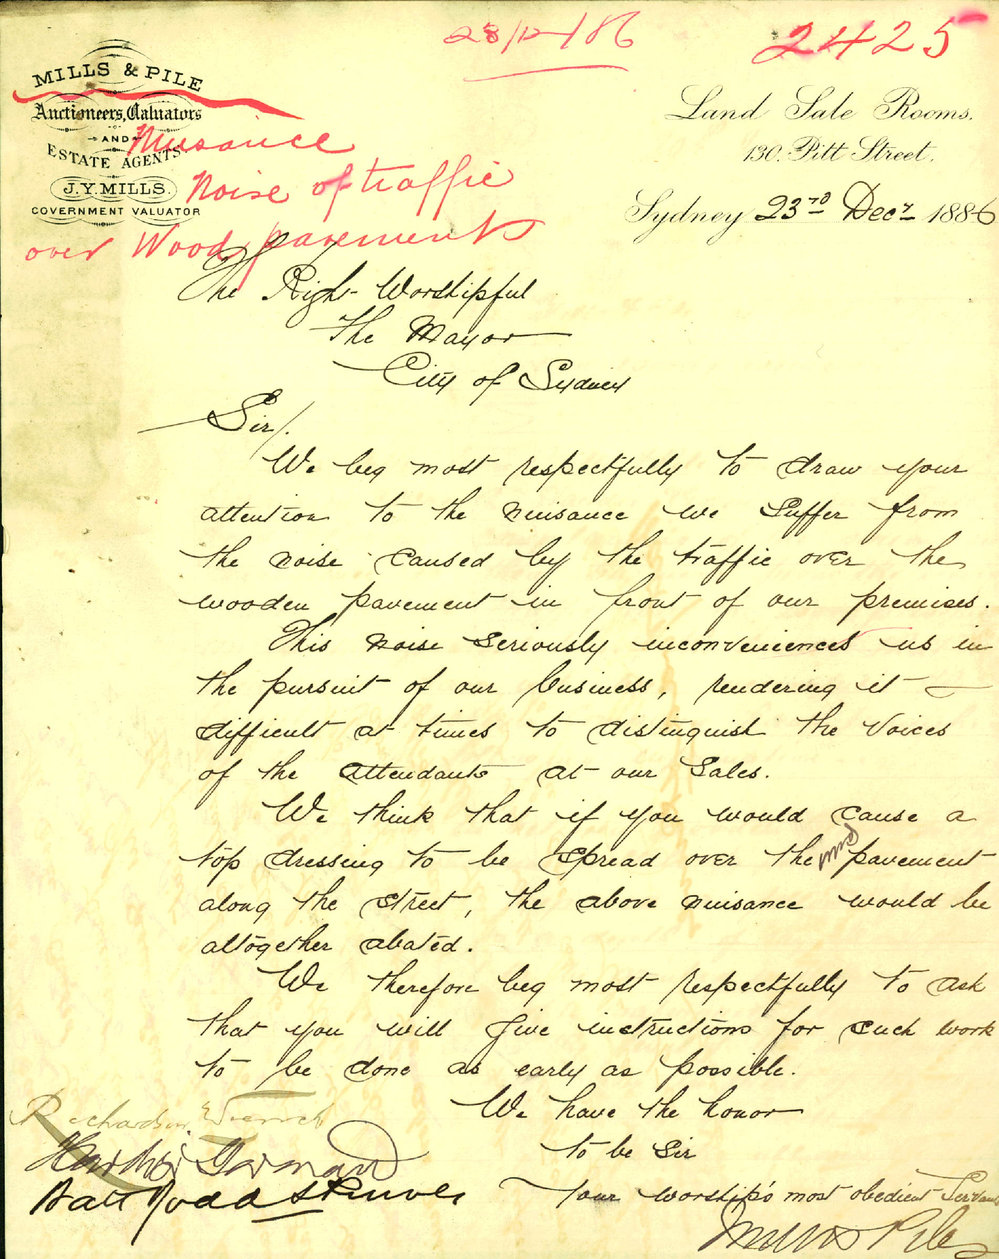 28/12/86
2425
MILLS & PILE
Auctioneers, Valuators
AND
ESTATE AGENTS
J.Y. MILLS.
GOVERNMENT VALUATOR
Nuisance
Noise of traffic
over Wood pavements
Land Sale Rooms.
130. Pitt Street.
Sydney 23rd Decr 1886
The Right Worshipful
The Mayor
City of Sydney
Sir/.
We beg most respectfully to draw your
attention to the nuisance we suffer from
the noise caused by the traffic over the
wooden pavement in front of our premises.
This noise seriously inconveniences us in
the pursuit of our business, rendering it
difficult at times to distinguish the voices
of the attendants at our Sales.
We think that if you would cause a
top dressing to be spread over the wood pavement
along the street, the above nuisance would be
altogether abated.
We therefore beg most respectfully to ask
that you will give instructions for such work
to be done as early as possible.
We have the honor
to be Sir
Your worship's most obedient Servants
Mills & Pile
Richardson & Wrench
Hardie & Gorman
Batt Rodd & Purves